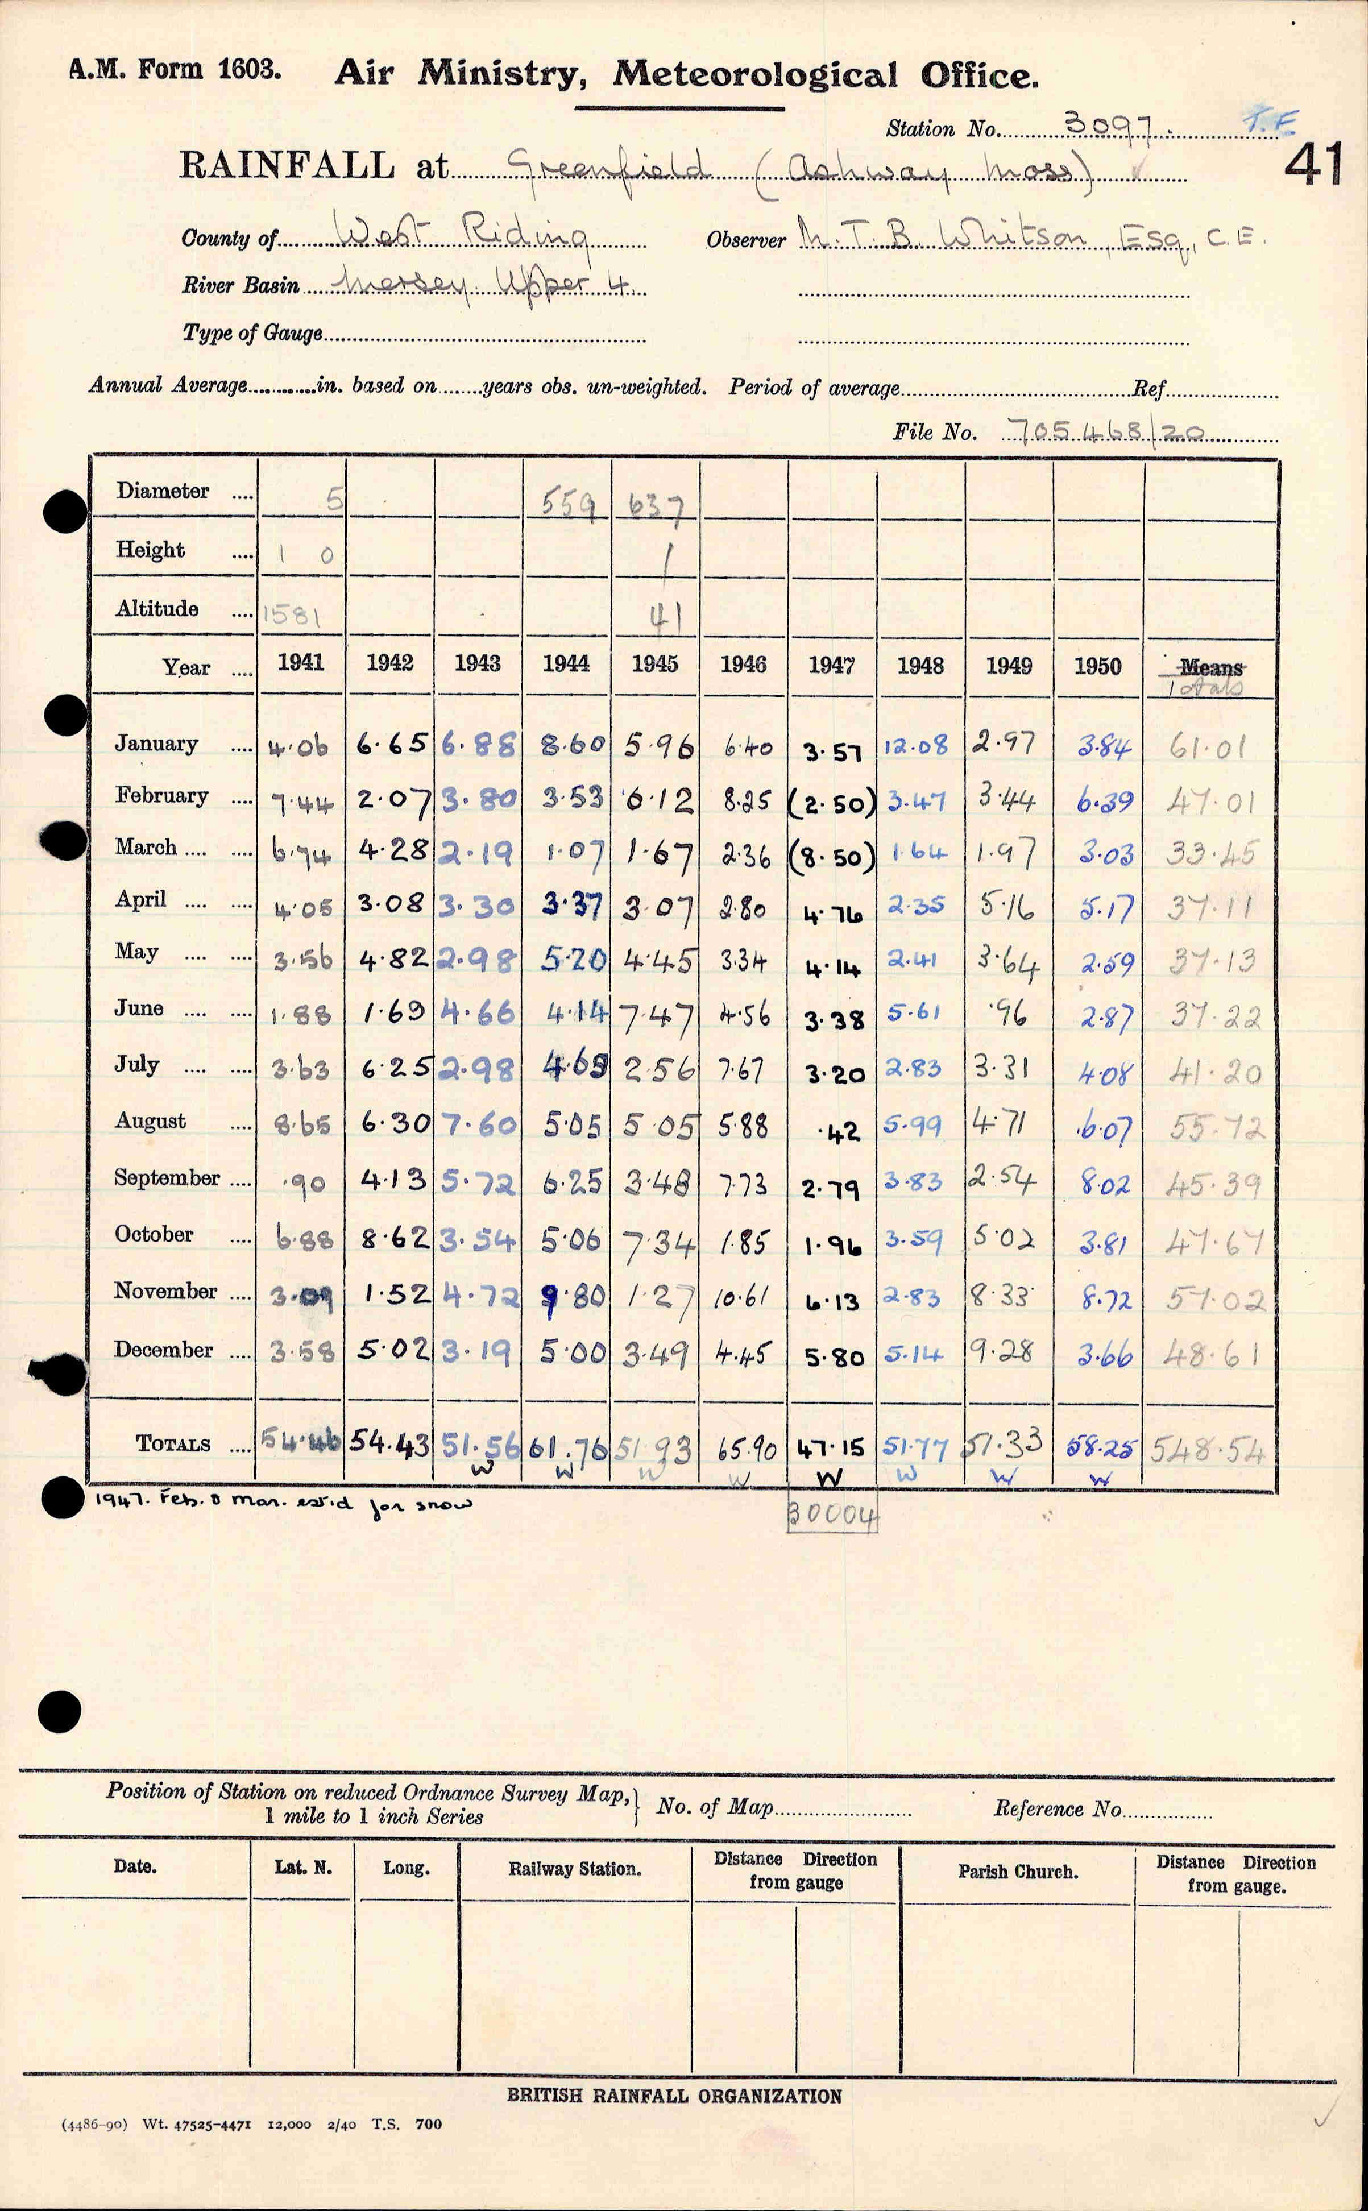 A.M. Form 1603. Air Ministry, Meteorological Office.
Station No. 3097. T.F
41
RAINFALL at Greenfield (Ashway Moss)
County of West Riding Observer M.T.B. Whitson, Esq., C.E.
River Basin Mersey. Upper 4.
Type of Gauge
Annual Average in. based on years obs. un-weighted. Period of average Ref
File No. 705468/20
Diameter .... 5 559 637
Height .... 1 0 1
Altitude .... 1581 41
Year .... 1941 1942 1943 1944 1945 1946 1947 1948 1949 1950 Means
Totals
January .... 4.06 6.65 6.88 8.60 5.96 6.40 3.57 12.08 2.97 3.84 61.01
February .... 7.44 2.07 3.80 3.53 6.12 8.25 (2.50) 3.47 3.44 6.39 47.01
March .... .... 6.74 4.28 2.19 1.07 1.67 2.36 (8.50) 1.64 1.97 3.03 33.45
April .... .... 4.05 3.08 3.30 3.37 3.07 2.80 4.76 2.35 5.16 5.17 37.11
May .... .... 3.56 4.82 2.98 5.20 4.45 3.34 4.14 2.41 3.64 2.59 37.13
June .... .... 1.88 1.69 4.66 4.14 7.47 4.56 3.38 5.61 .96 2.87 37.22
July .... .... 3.63 6.25 2.98 4.69 2.56 7.67 3.20 2.83 3.31 4.08 41.20
August .... 8.65 6.30 7.60 5.05 5.05 5.88 .42 5.99 4.71 6.07 55.72
September .... .90 4.13 5.72 6.25 3.48 7.73 2.79 3.83 2.54 8.02 45.39
October .... 6.88 8.62 3.54 5.06 7.34 1.85 1.96 3.59 5.02 3.81 47.67
November .... 3.09 1.52 4.72 9.80 1.27 10.61 6.13 2.83 8.33 8.72 57.02
December .... 3.58 5.02 3.19 5.00 3.49 4.45 5.80 5.14 9.28 3.66 48.61
TOTALS .... 54.46 54.43 51.56 61.76 51.93 65.90 47.15 51.77 51.33 58.25 548.54
W W W W W W W W
1947. Feb. & Mar. est'd for snow
30004
Position of Station on reduced Ordnance Survey Map,
1 mile to 1 inch Series } No. of Map Reference No.
Date. Lat. N. Long. Railway Station. Distance Direction from gauge Parish Church. Distance Direction from gauge.
BRITISH RAINFALL ORGANIZATION
(4486-90) Wt. 47525-4471 12,000 2/40 T.S. 700